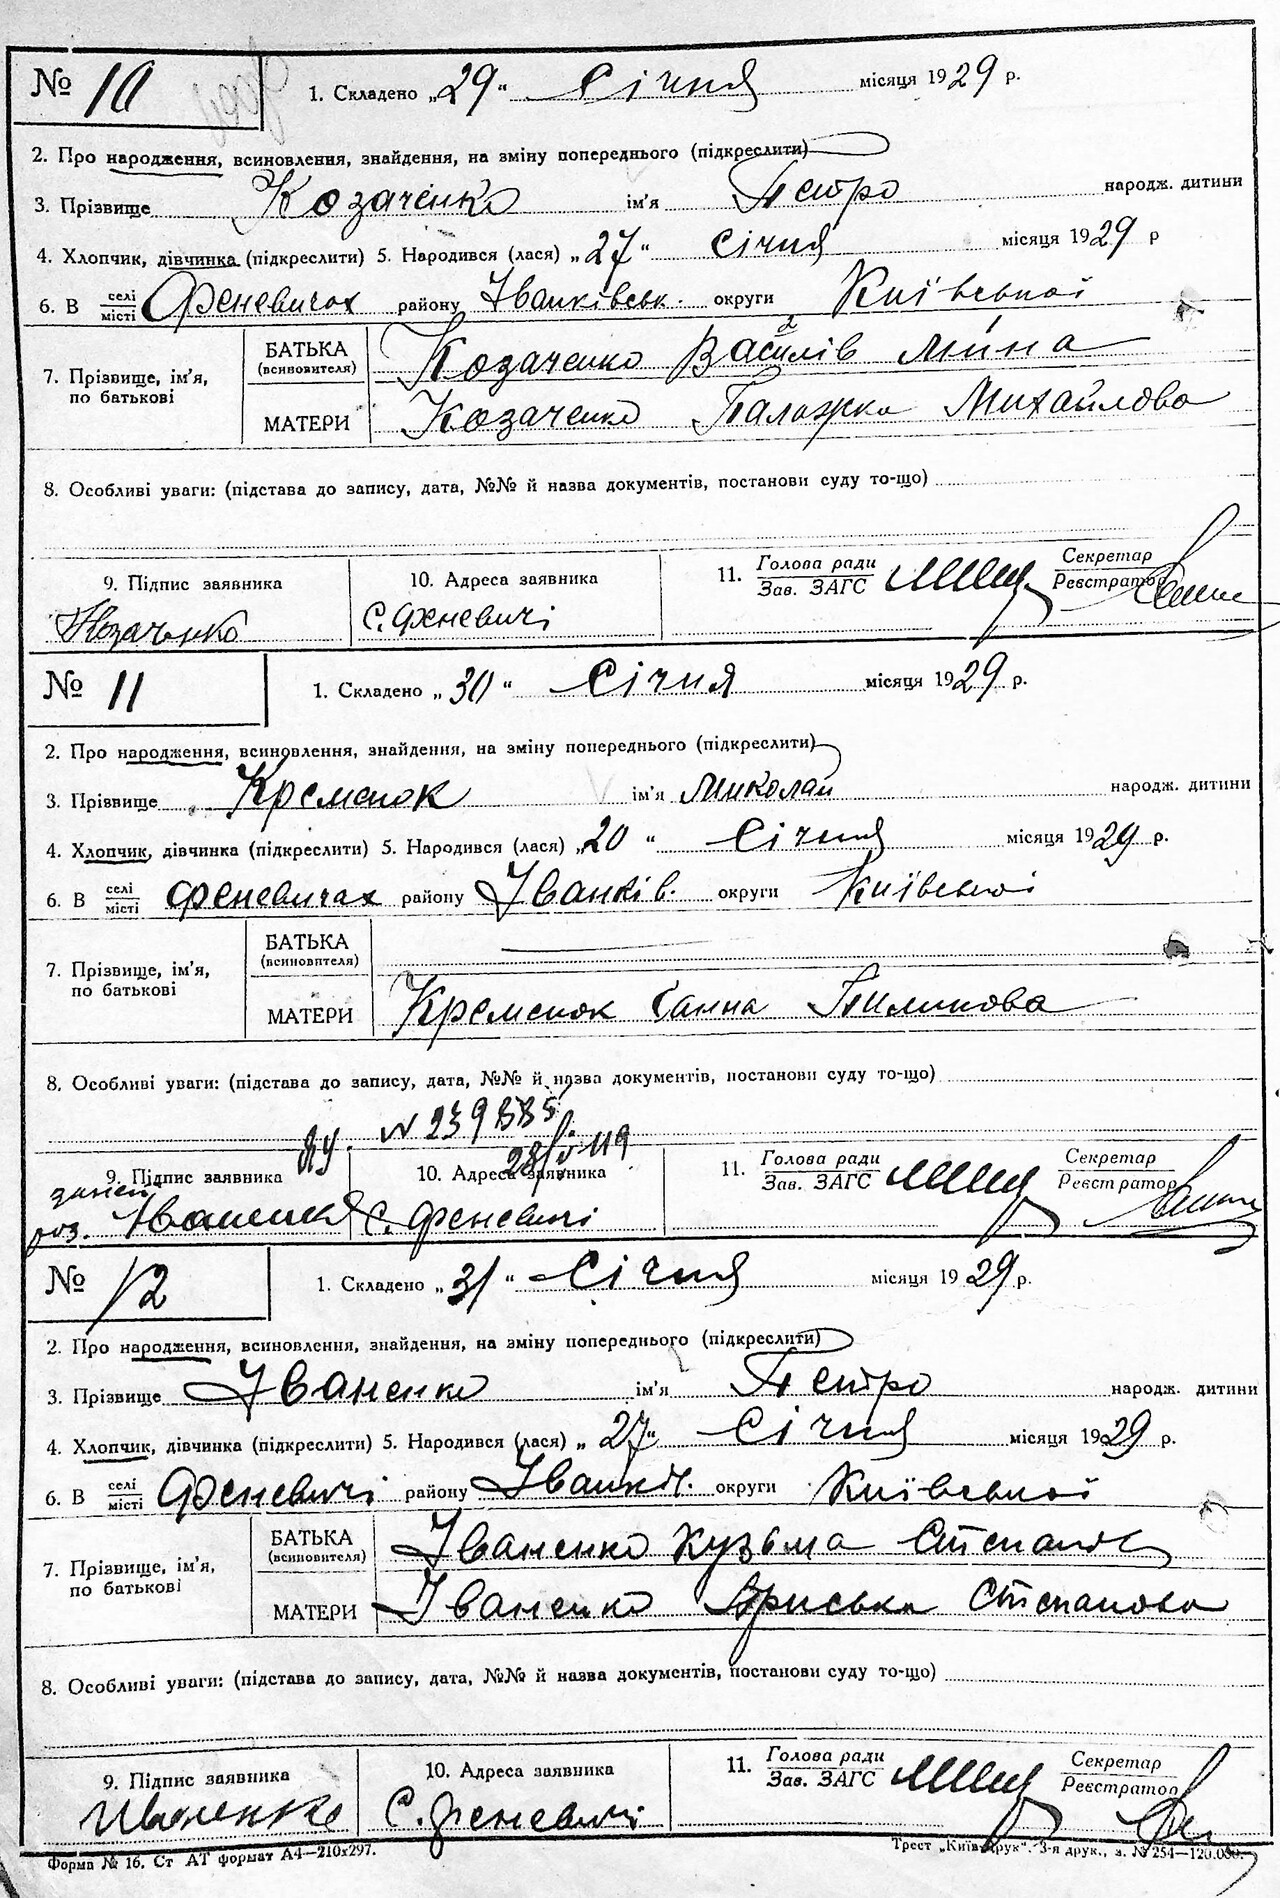 № 10 1. Складено „29“ Січня місяця 1929 р.
2. Про народження, всиновлення, знайдення, на зміну попереднього (підкреслити)
3. Прізвище Козаченко ім'я Петро народж. дитини
4. Хлопчик, дівчинка (підкреслити) 5. Народився (лася) „27“ Січня місяця 1929 р
6. В селі/місті Феневичах району Іванківськ. округи Київської
7. Прізвище, ім'я, по батькові БАТЬКА (всиновителя) Козаченко Василів Мина
МАТЕРИ Козаченко Палажка Михайлова
8. Особливі уваги: (підстава до запису, дата, №№ й назва документів, постанови суду то-що)
9. Підпис заявника 10. Адреса заявника 11. Голова ради/Зав. ЗАГС Секретар/Реєстратор
Козаченко С. Феневичі
№ 11 1. Складено „30“ Січня місяця 1929 р.
2. Про народження, всиновлення, знайдення, на зміну попереднього (підкреслити)
3. Прізвище Кременок ім'я Миколай народж. дитини
4. Хлопчик, дівчинка (підкреслити) 5. Народився (лася) „20“ Січня місяця 1929 р.
6. В селі/місті Феневичах району Іванків. округи Київської
7. Прізвище, ім'я, по батькові БАТЬКА (всиновителя)
МАТЕРИ Кременок Ганна
8. Особливі уваги: (підстава до запису, дата, №№ й назва документів, постанови суду то-що)
9. Підпис заявника 10. Адреса заявника 11. Голова ради/Зав. ЗАГС Секретар/Реєстратор
С. Феневичі
№ 12 1. Складено „31“ Січня місяця 1929 р.
2. Про народження, всиновлення, знайдення, на зміну попереднього (підкреслити)
3. Прізвище Іваненко ім'я Петро народж. дитини
4. Хлопчик, дівчинка (підкреслити) 5. Народився (лася) „27“ Січня місяця 1929 р.
6. В селі/місті Феневичі району Іванків. округи Київської
7. Прізвище, ім'я, по батькові БАТЬКА (всиновителя) Іваненко Кузьма Степанов
МАТЕРИ Іваненко Приська Степанова
8. Особливі уваги: (підстава до запису, дата, №№ й назва документів, постанови суду то-що)
9. Підпис заявника 10. Адреса заявника 11. Голова ради/Зав. ЗАГС Секретар/Реєстратор
Иваненко С. Феневичі
Форма № 16. Ст АТ формат А4—210х297. Трест „Київ-друк“. 3-я друк., з. № 254—120.000.